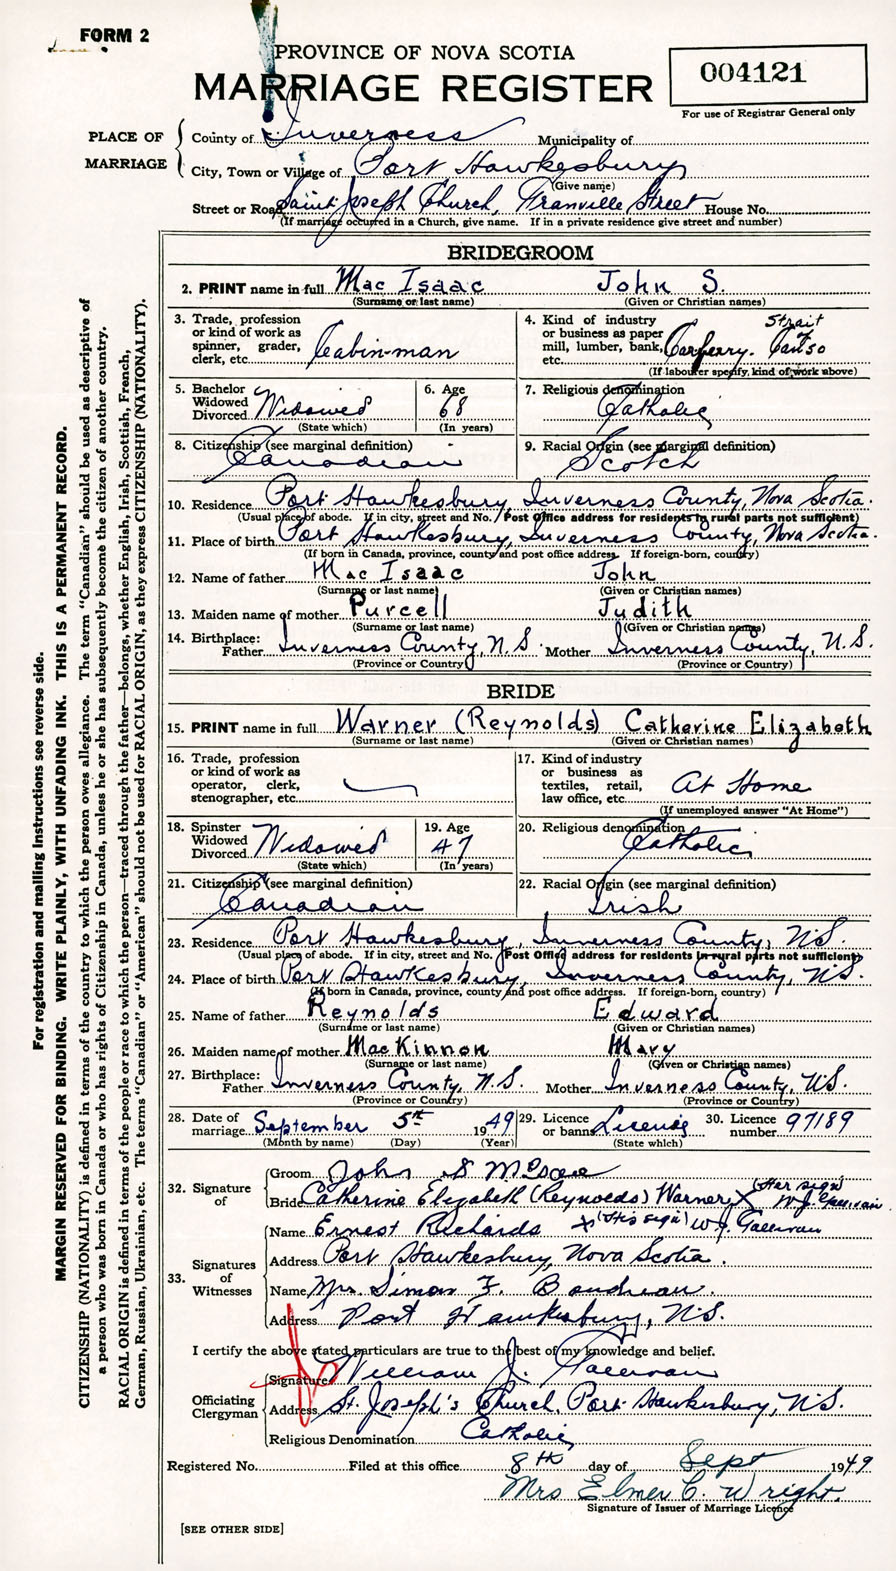 FORM 2
PROVINCE OF NOVA SCOTIA
MARRIAGE REGISTER
004121
For use of Registrar General only
PLACE OF MARRIAGE
County of Inverness Municipality of
City, Town or Village of Port Hawkesbury
(Give name)
Street or Road Saint Joseph Church, Granville Street House No.
(If marriage occurred in a Church, give name. If in a private residence give street and number)
BRIDEGROOM
2. PRINT name in full Mac Isaac John S.
(Surname or last name) (Given or Christian names)
3. Trade, profession or kind of work as spinner, grader, clerk, etc. Cabin-man
4. Kind of industry or business as paper mill, lumber, bank, etc. Strait of Canso
(If labourer specify, kind of work above)
5. Bachelor Widowed Divorced Widowed
(State which)
6. Age 68
(In years)
7. Religious denomination Catholic
8. Citizenship (see marginal definition) Canadian
9. Racial Origin (see marginal definition) Scotch
10. Residence Port Hawkesbury, Inverness County, Nova Scotia.
(Usual place of abode. If in city, street and No. Post Office address for residents in rural parts not sufficient)
11. Place of birth Port Hawkesbury, Inverness County, Nova Scotia.
(If born in Canada, province, county and post office address. If foreign-born, country)
12. Name of father Mac Isaac John
(Surname or last name) (Given or Christian names)
13. Maiden name of mother Purcell Judith
(Surname or last name) (Given or Christian names)
14. Birthplace: Father Inverness County, N.S. Mother Inverness County, N.S.
(Province or Country) (Province or Country)
BRIDE
15. PRINT name in full Warner (Reynolds) Catherine Elizabeth
(Surname or last name) (Given or Christian names)
16. Trade, profession or kind of work as operator, clerk, stenographer, etc.
17. Kind of industry or business as textiles, retail, law office, etc. At Home
(If unemployed answer "At Home")
18. Spinster Widowed Divorced Widowed
(State which)
19. Age 47
(In years)
20. Religious denomination Catholic
21. Citizenship (see marginal definition) Canadian
22. Racial Origin (see marginal definition) Irish
23. Residence Port Hawkesbury, Inverness County, N.S.
(Usual place of abode. If in city, street and No. Post Office address for residents in rural parts not sufficient)
24. Place of birth Port Hawkesbury, Inverness County, N.S.
(If born in Canada, province, county and post office address. If foreign-born, country)
25. Name of father Reynolds Edward
(Surname or last name) (Given or Christian names)
26. Maiden name of mother MacKinnon Mary
(Surname or last name) (Given or Christian names)
27. Birthplace: Father Inverness County, N.S. Mother Inverness County, N.S.
(Province or Country) (Province or Country)
28. Date of marriage September 5th 1949
(Month by name) (Day) (Year)
29. Licence or banns License
(State which)
30. Licence number 97189
32. Signature of
Groom John S McIsaac
Bride Catherine Elizabeth (Reynolds) Warner X (Her sign) W.J. Gallivan
33. Signatures of Witnesses
Name Ernest Richards X (His sign) W.J. Gallivan
Address Port Hawkesbury, Nova Scotia.
Name Mrs. Simon F. Boudreau.
Address Port Hawkesbury, N.S.
I certify the above stated particulars are true to the best of my knowledge and belief.
Officiating Clergyman
Signature William J. Gallivan
Address St. Joseph's Church, Port Hawkesbury, N.S.
Religious Denomination Catholic
Registered No. Filed at this office 8th day of Sept 1949
Mrs Elmer C. Wright.
Signature of Issuer of Marriage Licence
[SEE OTHER SIDE]
For registration and mailing instructions see reverse side.
MARGIN RESERVED FOR BINDING. WRITE PLAINLY, WITH UNFADING INK. THIS IS A PERMANENT RECORD.
CITIZENSHIP (NATIONALITY) is defined in terms of the country to which the person owes allegiance. The term "Canadian" should be used as descriptive of
a person who was born in Canada or who has rights of Citizenship in Canada, unless he or she has subsequently become the citizen of another country.
RACIAL ORIGIN is defined in terms of the people or race to which the person—traced through the father—belongs, whether English, Irish, Scottish, French,
German, Russian, Ukrainian, etc. The terms "Canadian" or "American" should not be used for RACIAL ORIGIN, as they express CITIZENSHIP (NATIONALITY).